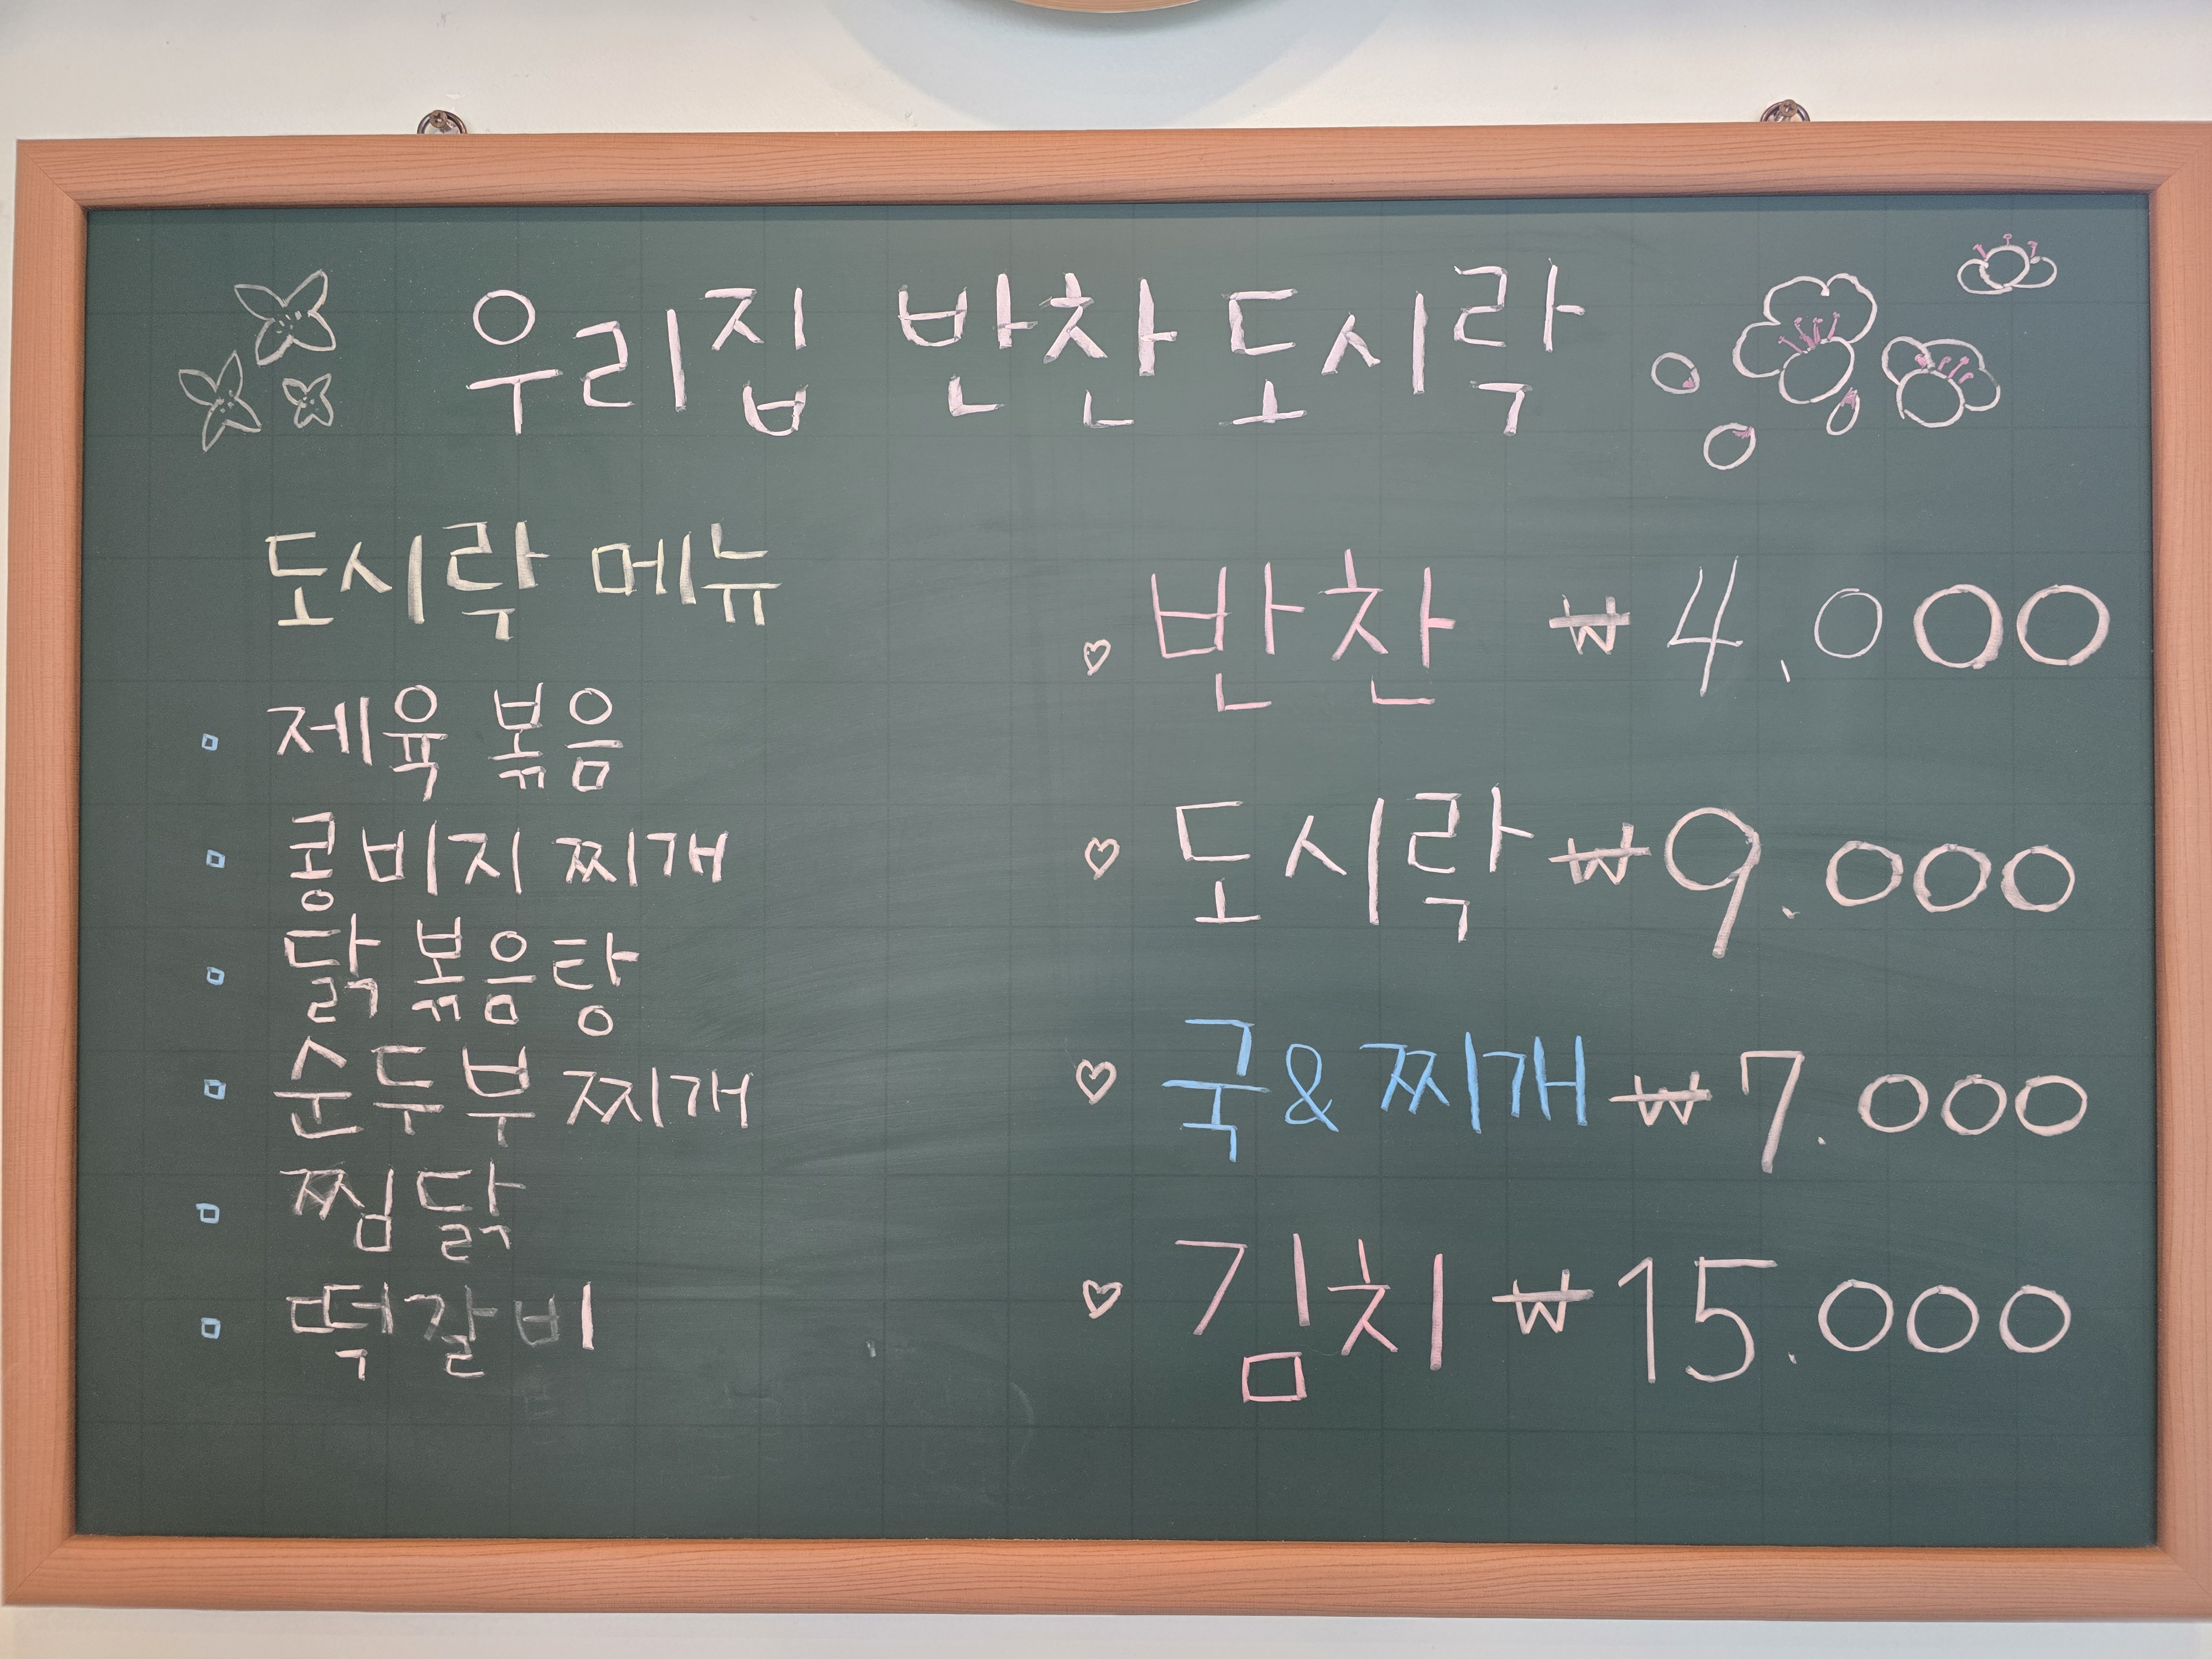 우리집 반찬도시락
도시락 메뉴
제육 볶음
콩비지 찌개
닭볶음탕
순두부 찌개
찜닭
떡갈비
반찬 ₩4,000
도시락 ₩9.000
국&찌개 ₩7.000
김치 ₩15.000